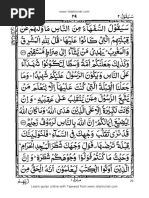 سَيَقُولُ السُّفَهَآءُ مِنَ النَّاسِ مَا وَلّٰىهُمْ عَنْ
قِبْلَتِهِمُ الَّتِىْ كَانُوْا عَلَيْهَا ؕ قُلْ لِّلّٰهِ الْمَشْرِقُ
وَالْمَغْرِبُ ؕ يَهْدِىْ مَنْ يَّشَآءُ اِلٰى صِرَاطٍ مُّسْتَقِيْمٍ
وَكَذٰلِكَ جَعَلْنٰكُمْ اُمَّةً وَّسَطًا لِّتَكُوْنُوْا شُهَدَآءَ
عَلَى النَّاسِ وَيَكُوْنَ الرَّسُوْلُ عَلَيْكُمْ شَهِيْدًا ؕ وَمَا
جَعَلْنَا الْقِبْلَةَ الَّتِىْ كُنْتَ عَلَيْهَآ اِلَّا لِنَعْلَمَ مَنْ يَّتَّبِعُ
الرَّسُوْلَ مِمَّنْ يَّنْقَلِبُ عَلٰى عَقِبَيْهِ ؕ وَاِنْ كَانَتْ لَكَبِيْرَةً
اِلَّا عَلَى الَّذِيْنَ هَدَى اللّٰهُ ؕ وَمَا كَانَ اللّٰهُ لِيُضِيْعَ اِيْمَانَكُمْ ؕ
اِنَّ اللّٰهَ بِالنَّاسِ لَرَءُوْفٌ رَّحِيْمٌ قَدْ نَرٰى تَقَلُّبَ
وَجْهِكَ فِى السَّمَآءِ ۚ فَلَنُوَلِّيَنَّكَ قِبْلَةً تَرْضٰىهَا ۪ فَوَلِّ
وَجْهَكَ شَطْرَ الْمَسْجِدِ الْحَرَامِ ؕ وَحَيْثُ مَا كُنْتُمْ فَوَلُّوْا وُجُوْهَكُمْ شَطْرَهٗ ؕ وَاِنَّ
الَّذِيْنَ اُوْتُوا الْكِتٰبَ لَيَعْلَمُوْنَ اَنَّهُ الْحَقُّ مِنْ رَّبِّهِمْ
Learn quran online with Tajweed from www.islamicnet.com